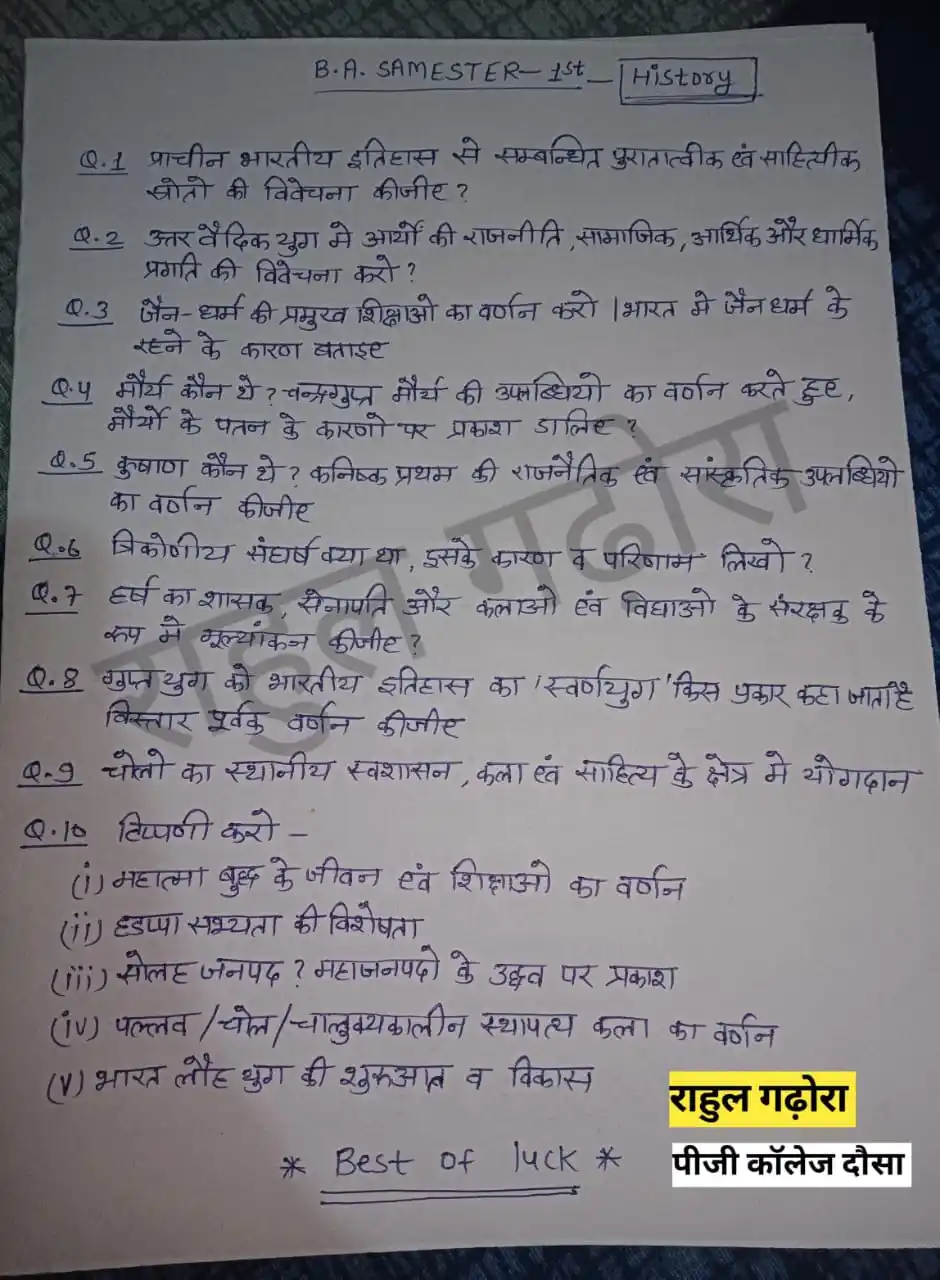 B.A. SAMESTER - 1st - History
Q.1 प्राचीन भारतीय इतिहास से सम्बन्धित पुरातात्वीक एवं साहित्यीक
स्रोतो की विवेचना कीजीए ?
Q.2 उत्तर वैदिक युग मे आर्यो की राजनीति, सामाजिक, आर्थिक और धार्मिक
प्रगति की विवेचना करो ?
Q.3 जैन-धर्म की प्रमुख शिक्षाओ का वर्णन करो । भारत मे जैन धर्म के
रहने के कारण बताइए
Q.4 मौर्य कौन थे ? चन्द्रगुप्त मौर्य की उपलब्धियो का वर्णन करते हुए,
मौर्यो के पतन के कारणो पर प्रकाश डालिए ?
Q.5 कुषाण कौन थे ? कनिष्क प्रथम की राजनैतिक एवं सांस्कृतिक उपलब्धियो
का वर्णन कीजीए
Q.6 त्रिकोणीय संघर्ष क्या था, इसके कारण व परिणाम लिखो ?
Q.7 हर्ष का शासक, सेनापति और कलाओ एवं विद्याओ के संरक्षक के
रूप मे मूल्यांकन कीजीए ?
Q.8 गुप्त युग को भारतीय इतिहास का 'स्वर्णयुग' किस प्रकार कहा जाता है
विस्तार पूर्वक वर्णन कीजीए
Q.9 चोलो का स्थानीय स्वशासन, कला एवं साहित्य के क्षेत्र मे योगदान
Q.10 टिप्पणी करो -
(i) महात्मा बुद्ध के जीवन एवं शिक्षाओ का वर्णन
(ii) हडप्पा सभ्यता की विशेषता
(iii) सोलह जनपद ? महाजनपदो के उद्भव पर प्रकाश
(iv) पल्लव / चोल / चालुक्यकालीन स्थापत्य कला का वर्णन
(v) भारत लौह युग की शुरुआत व विकास
राहुल गढ़ोरा
* Best of luck *
पीजी कॉलेज दौसा
राहुल गढोरा